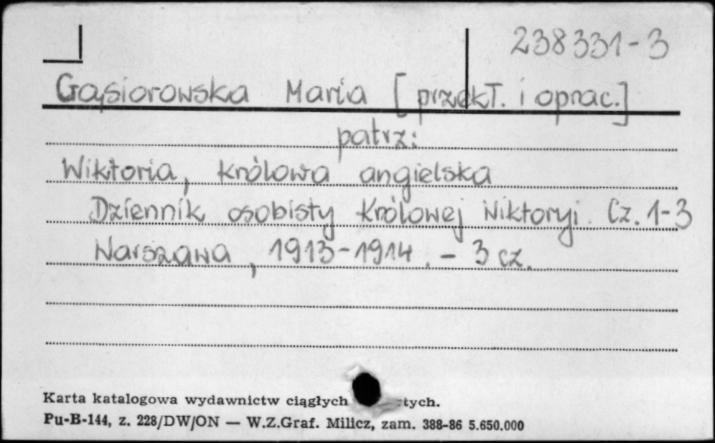 238331-3
Gąsiorowska Maria [przekł. i oprac.]
patrz:
Wiktoria, królowa angielska
Dziennik osobisty Królowej Wiktoryi. Cz. 1-3
Warszawa, 1913-1914. - 3 cz.
Karta katalogowa wydawnictw ciągłych tych.
Pu-B-144, z. 228/DW/ON — W.Z.Graf. Milicz, zam. 388-86 5.650.000